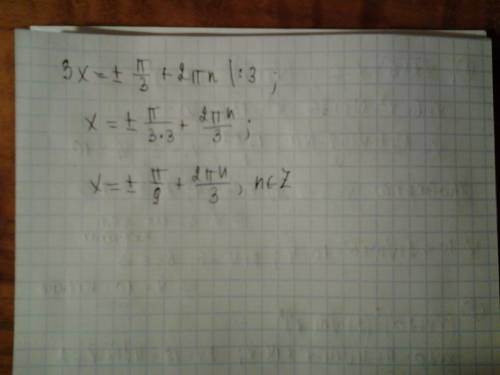 3x = ± π/3 + 2πn |:3 ;
x = ± π/3·3 + 2πn/3 ;
x = ± π/9 + 2πn/3 , n∈Z